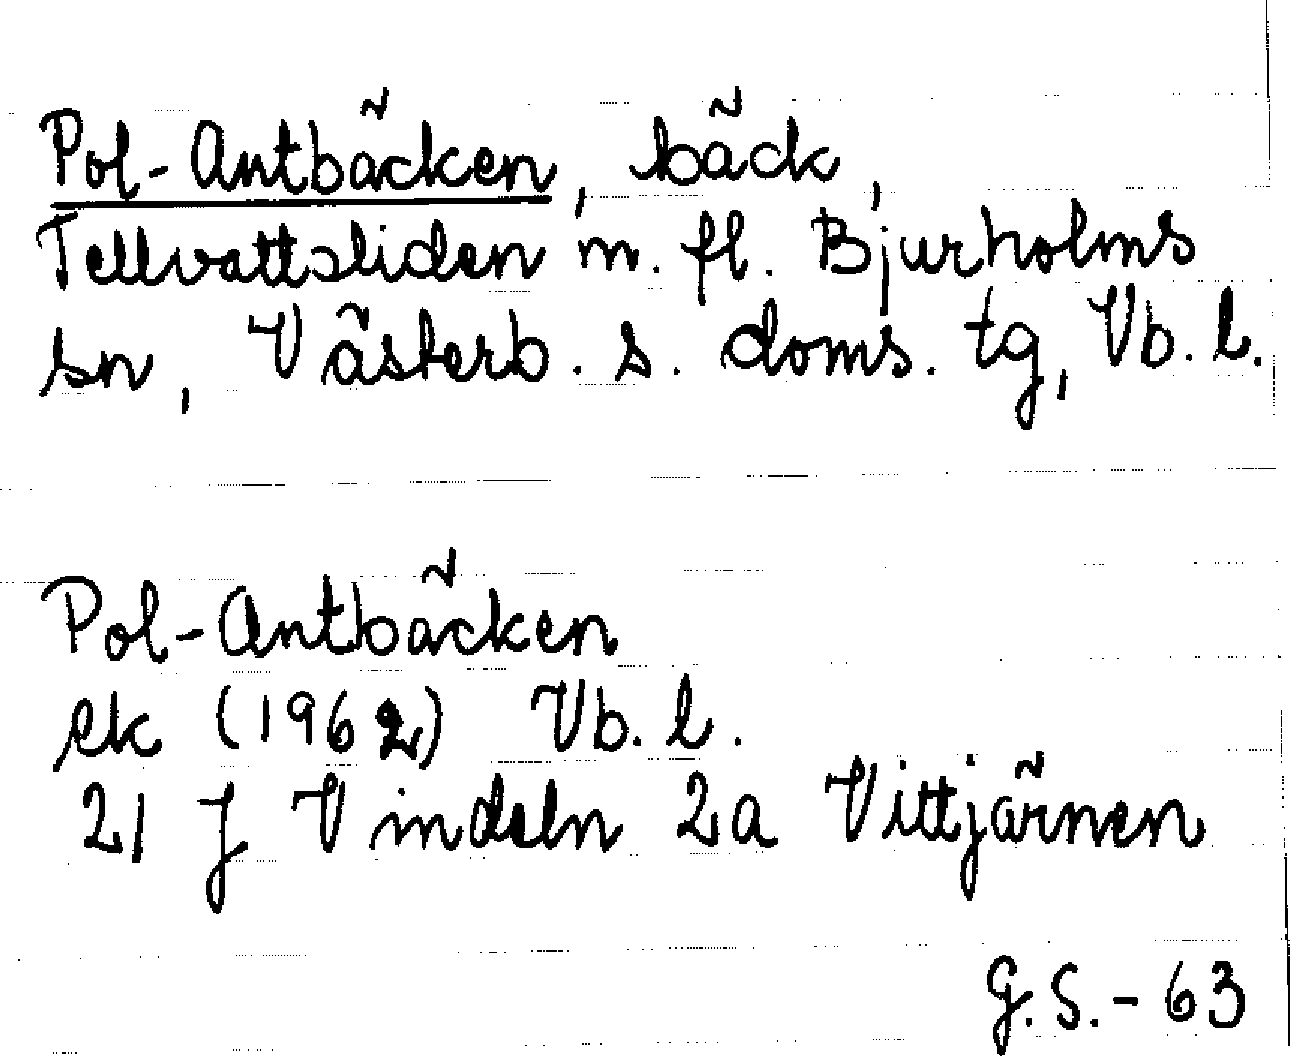 Pol-Antbäcken, bäck,
Tellvattsliden m. fl. Bjurholms
sn, Västerb. s. doms. tg, Vb. l.
Pol-Antbäcken
ek (1962) Vb. l.
21 J Vindeln 2a Vittjärnen
G.S.-63